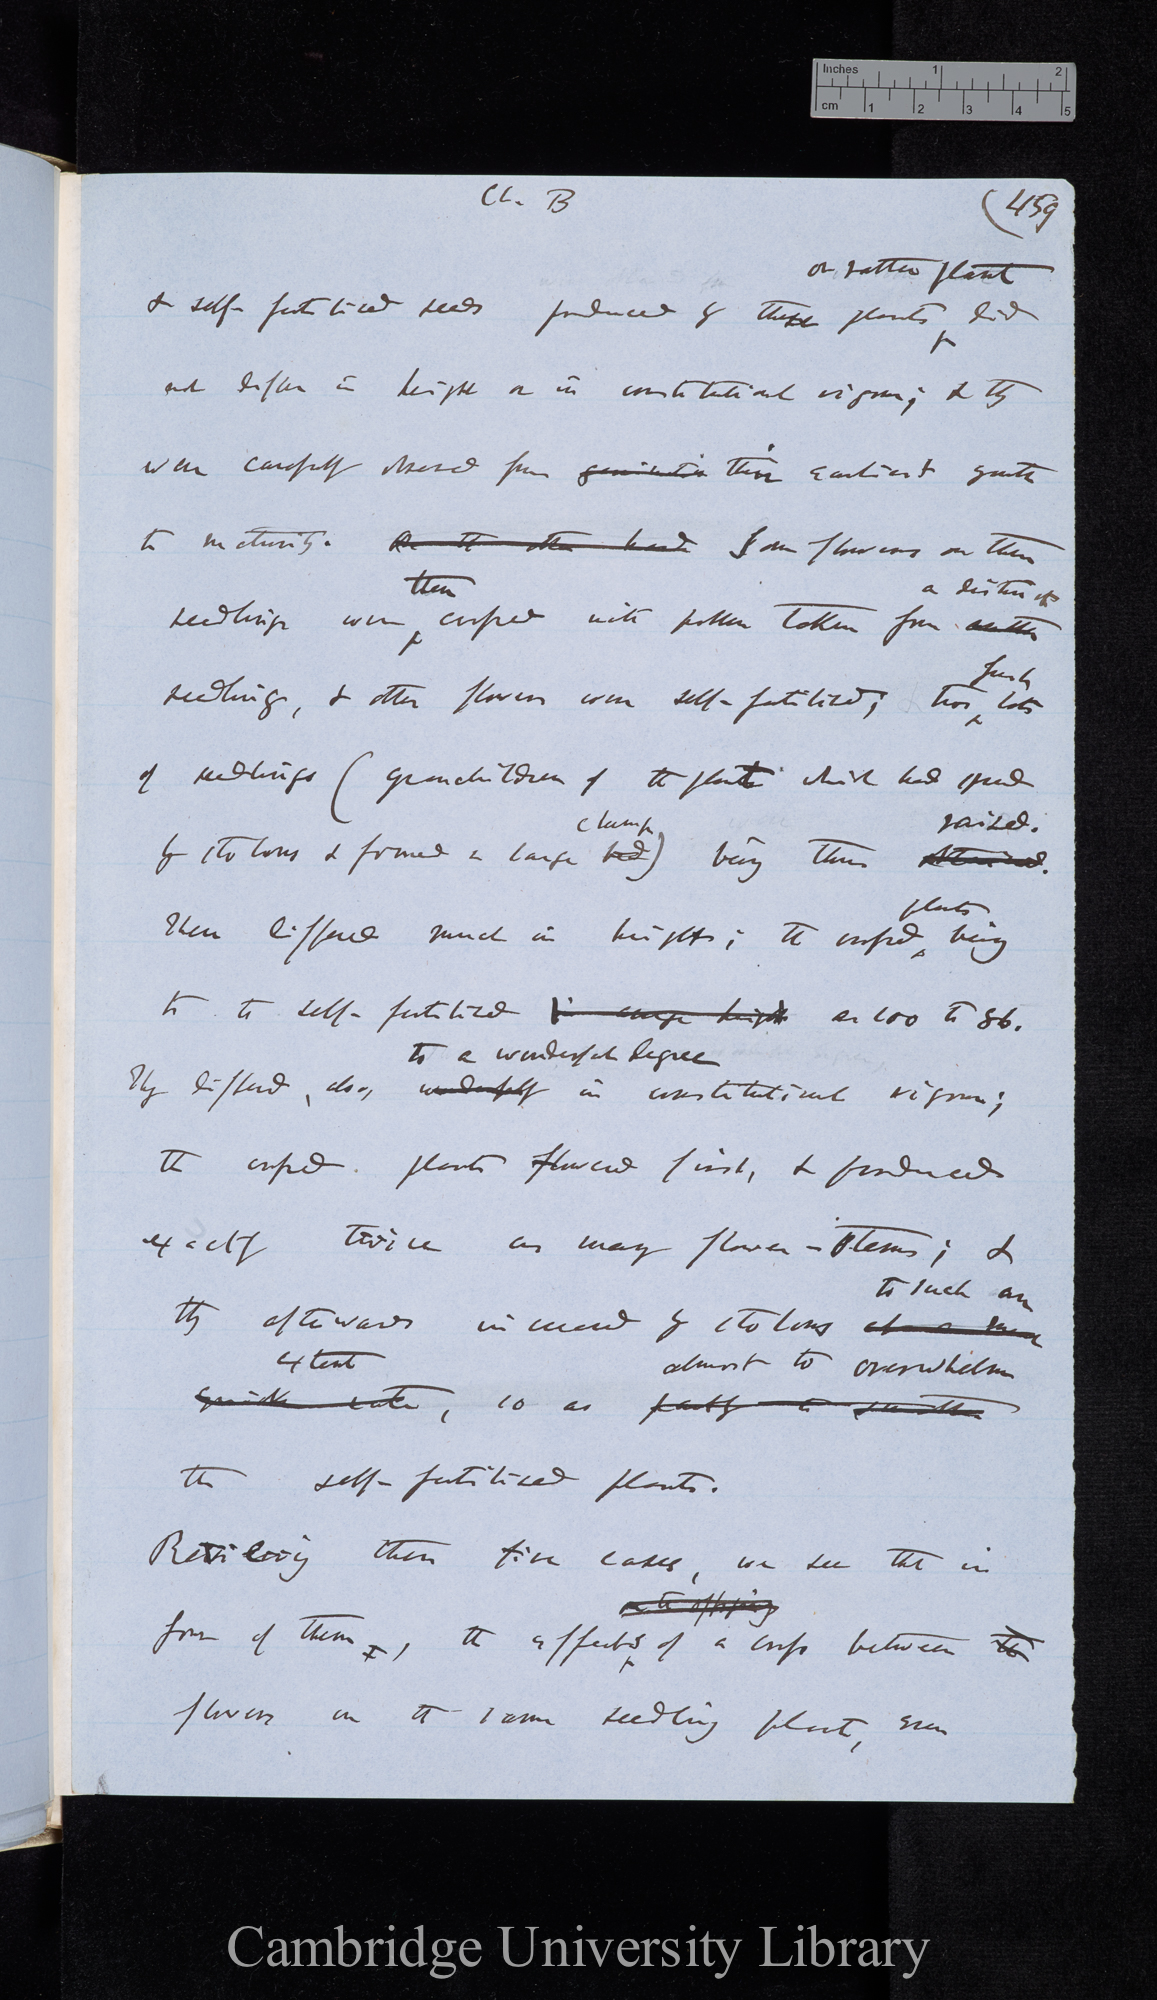 Inches 1 2
cm 1 2 3 4 5
Ch. B
(459
or rather plant
& self-fertilised seeds produced by these plants, did
not differ in height or in constitutional vigour; & they
were carefully observed from germination their earliest growth
to maturity. On the other hand Some flowers on these
then
a distinct
seedlings were crossed with pollen taken from another
fresh
seedling, & other flowers were self-fertilised; two lots
of seedlings (grandchildren of the plant which had spread
clump
raised.
by stolons & formed a large bed) being thus obtained.
plants
These differed much in height; the crossed being
to the self-fertilised in average height as 100 to 86.
to a wonderful degree
They differed, also, wonderfully in constitutional vigour;
the crossed plants flowered first, & produced
exactly twice as many flower-stems; &
to such an
they afterwards increased by stolons at a much
extent
almost to overwhelm
quicker rate, so as partly to smother
the self-fertilised plants.
Reviewing these five cases, we see that in
on the offspring
four of them, the effects of a cross between the
flowers on the same seedling plant, even
Cambridge University Library